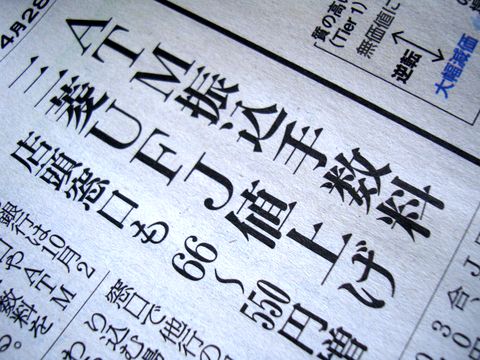 4月28
「質の高い
(Tier 1)
無価値に
逆転
大幅減価
ATM振込手数料
三菱UFJ値上げ
店頭窓口も 66〜550円増
銀行は10月2
やATM
数料を
窓口で他行の
り込む